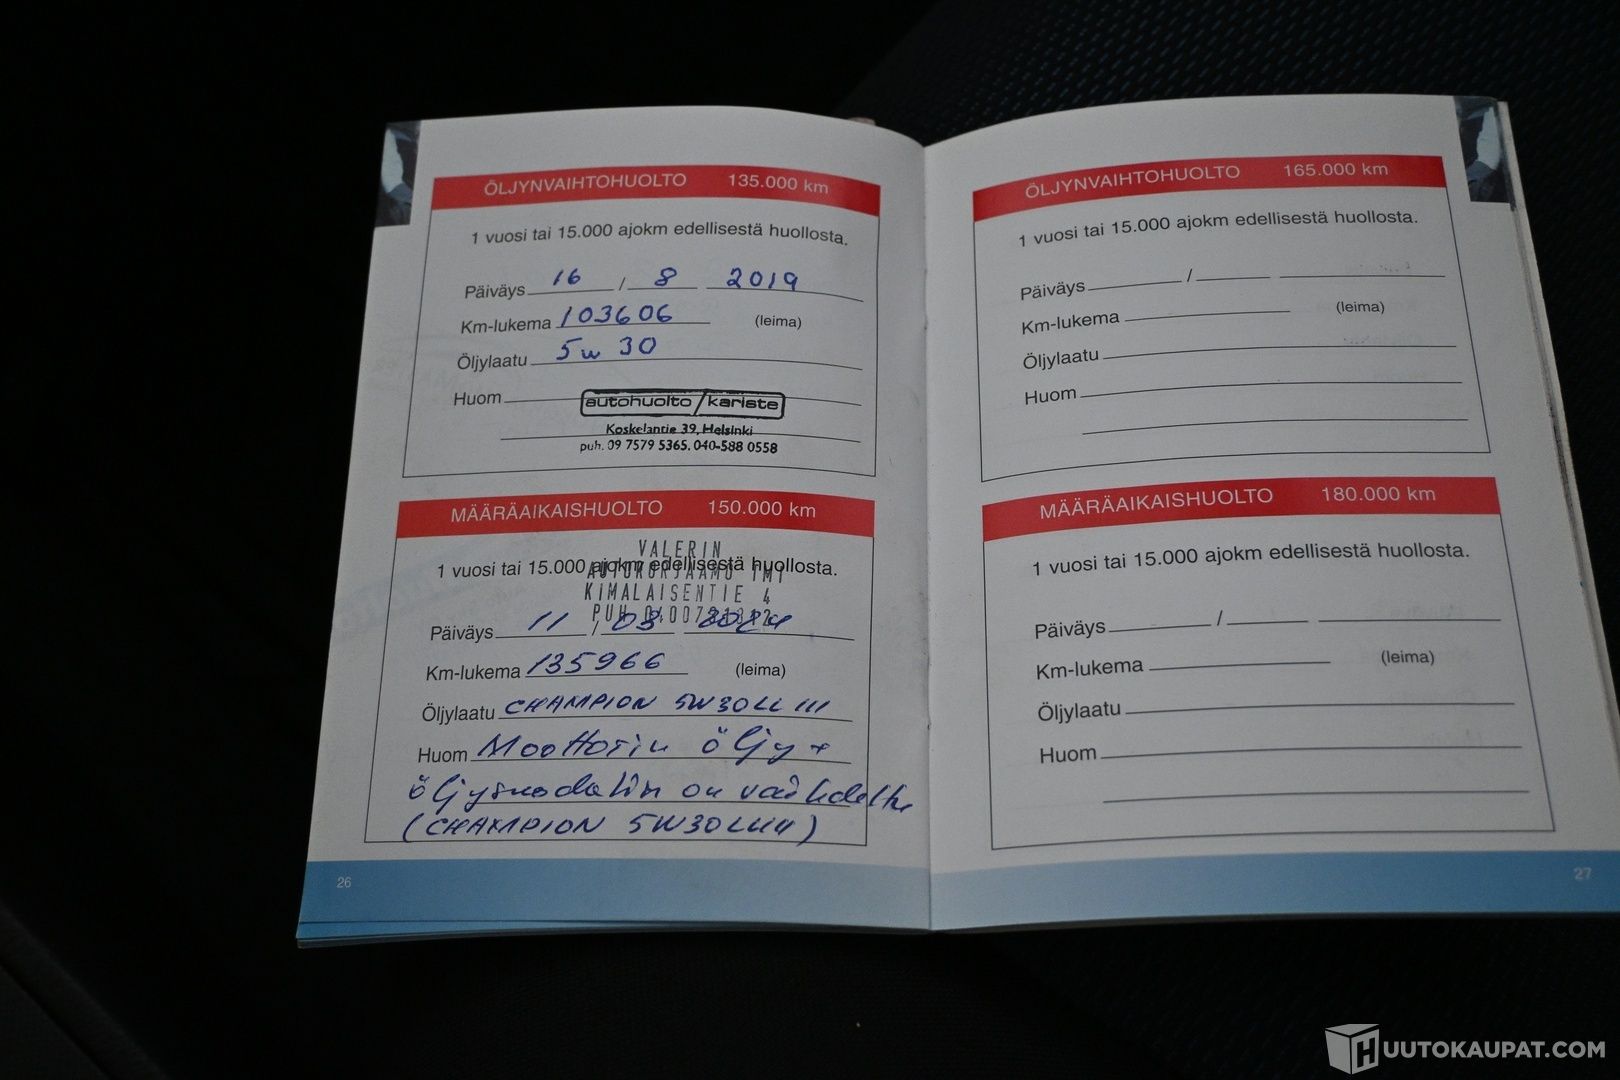 ÖLJYNVAIHTOHUOLTO 135.000 km
1 vuosi tai 15.000 ajokm edellisestä huollosta.
Päiväys 16 / 8 2019
Km-lukema 103606 (leima)
Öljylaatu 5w 30
Huom
autohuolto/kariste
Koskelantie 39, Helsinki
puh. 09 7579 5365. 040-588 0558
MÄÄRÄAIKAISHUOLTO 150.000 km
VALERIN
1 vuosi tai 15.000 ajokm edellisestä huollosta.
AUTOKORJAAMO TMI
KIMALAISENTIE 4
PUH
Päiväys 11 / 03 2024
Km-lukema 135966 (leima)
Öljylaatu CHAMPION 5W30LL III
Huom Moottorin öljy +
öljysuodatin on vaihdettu
(CHAMPION 5W30
26
ÖLJYNVAIHTOHUOLTO 165.000 km
1 vuosi tai 15.000 ajokm edellisestä huollosta.
Päiväys /
Km-lukema (leima)
Öljylaatu
Huom
MÄÄRÄAIKAISHUOLTO 180.000 km
1 vuosi tai 15.000 ajokm edellisestä huollosta.
Päiväys /
Km-lukema (leima)
Öljylaatu
Huom
27
HUUTOKAUPAT.COM